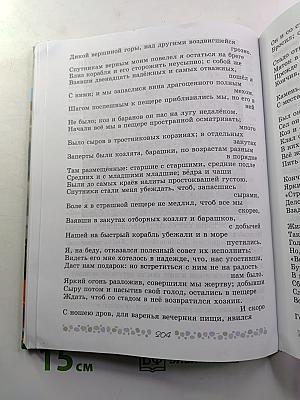 Дикой вершиной горы, над другими воздвигшейся
грозно.
Спутникам верным моим повелел я остаться на бреге
Близ корабля и его сторожить неусыпно; с собой же
Взявши двенадцать надёжных и самых отважных,
пошёл я
С ними; и мы запаслися вина драгоценного полным
мехом.
Шагом поспешным к пещере приблизились мы, но его в
ней
Не было; коз и баранов он пас на лугу недалёком.
Начали всё мы в пещере пространной осматривать;
много
Было сыров в тростниковых корзинах; в отдельных
закутах
Заперты были козлята, барашки, по возрастам разным
в порядке
Там размещённые: старшие с старшими, средние подле
Средних и с младшими младшие; вёдра и чаши
Были до самых краёв налиты простоквашей густою.
Спутники стали меня убеждать, чтоб, запасшись
сырами,
Боле я в страшной пещере не медлил, чтоб все мы
скорее,
Взявши в закутах отборных козлят и барашков,
с добычей
Нашей на быстрый корабль убежали и в море
пустились.
Я, на беду, отказался полезный совет их исполнить;
Видеть его мне хотелось в надежде, что, нас угостивши,
Даст нам подарок: но встретиться с ним не на радость
нам было.
Яркий огонь разложив, совершили мы жертву; добывши
Сыру потом и насытив свой голод, остались в пещере
Ждать, чтоб со стадом в неё возвратился хозяин.
И скоро
С ношею дров, для варенья вечерния пищи, явился
204
15 см